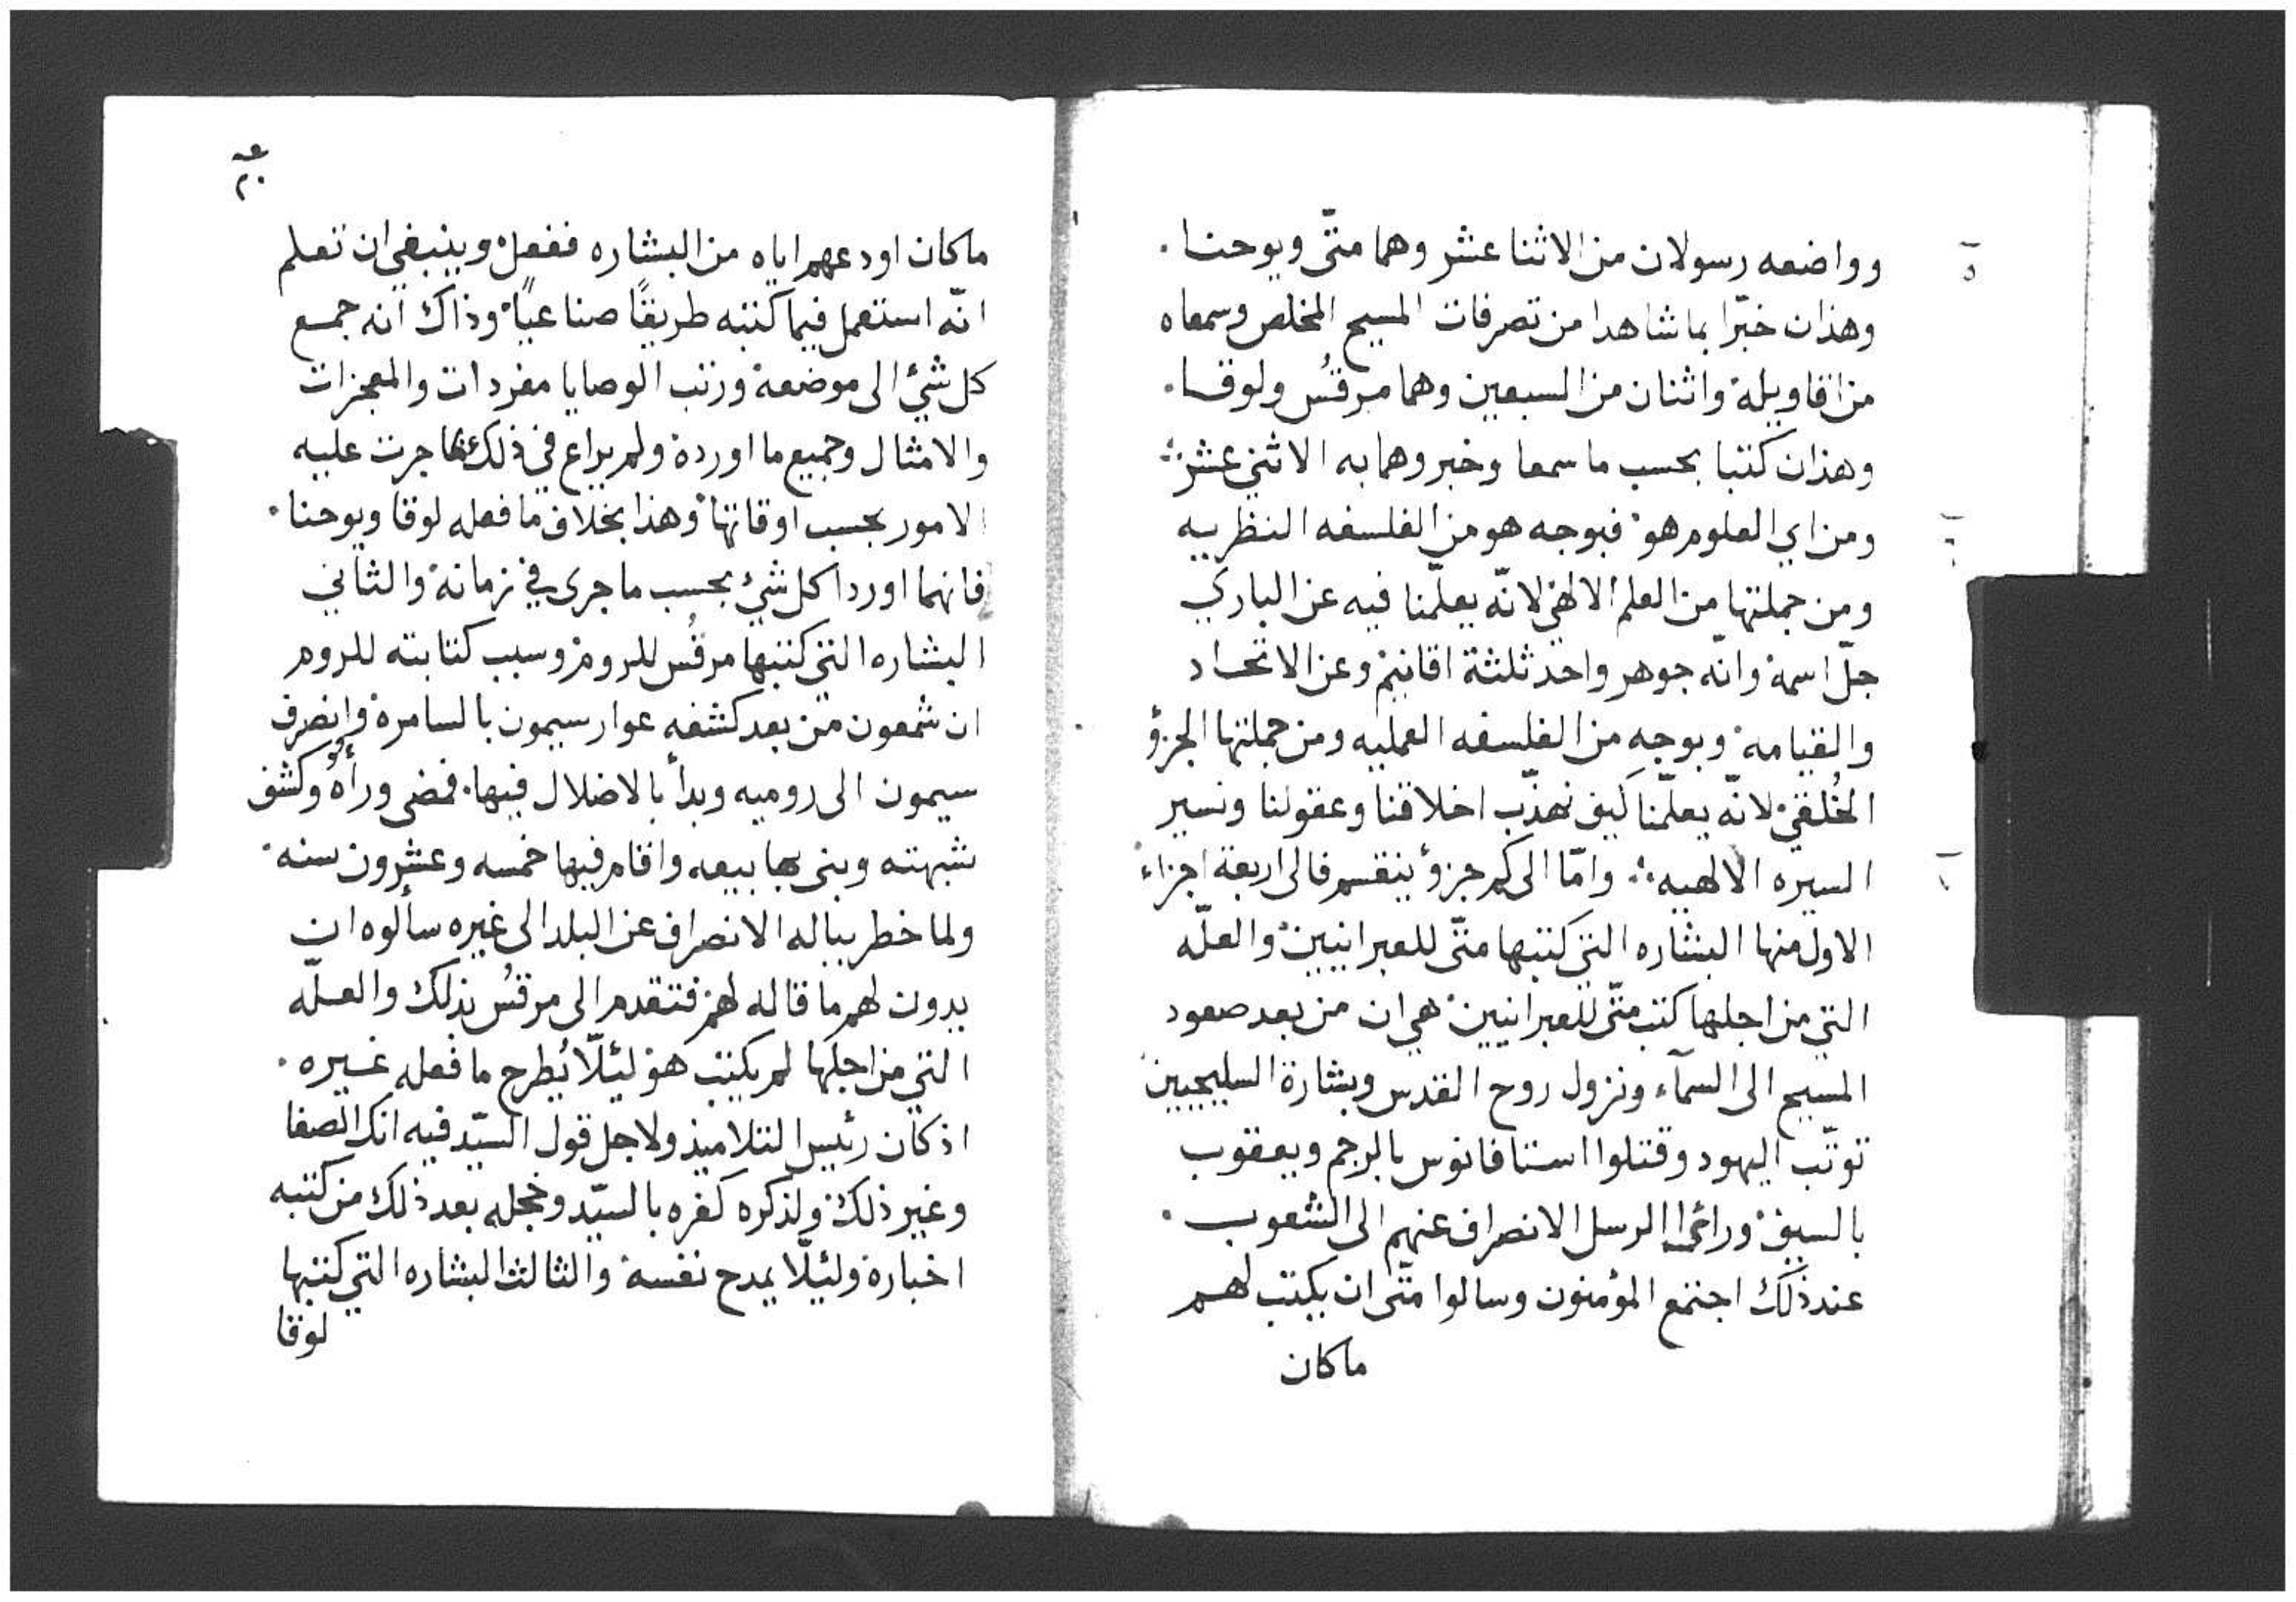 وواضعه رسولان من الاثنا عشر وهما متّى ويوحنا.
وهذان خبّرا بما شاهدا من تصرفات المسيح المخلص وسمعاه
من اقاويله واثنان من السبعين وهما مرقُس ولوقا.
وهذان كتبا بحسب ما سمعا وخبروهما به الاثني عشر
ومن اي العلوم هو فبوجه هو من الفلسفه النظريه
ومن جملتها من العلم الالهي لانّه يعلّمنا فيه عن الباري
جلّ اسمه وانّه جوهر واحد ثلثة اقانيم وعن الاتحاد
والقيامه وبوجه من الفلسفه العمليه ومن جملتها الجزؤ
الخُلقي لانّه يعلّمنا كيف نهذّب اخلاقنا وعقولنا ونسير
السيره الالهيه وامّا الى كم جزؤ ينقسم فالى اربعة اجزاء
الاول منها البشاره التي كتبها متّى للعبرانيين والعلّه
التي من اجلها كتب متّى للعبرانيين هي ان من بعد صعود
المسيح الى السمآء ونزول روح القدس وبشارة السليحيين
توثّب اليهود وقتلوا استافانوس بالرجم ويعقوب
بالسيف الرسل الانصراف عنهم الى الشعوب.
عند ذلك اجتمع المؤمنون وسالوا متّى ان يكتب لهم
ما كان
ما كان اودعهم اياه من البشاره ففعل وينبغي ان تعلم
انّه استعمل فيما كتبه طريقًا صناعيًا وذاك انه جمع
كل شئ الى موضعه ورتب الوصايا مفردات والمعجزات
والامثال وجميع ما اورده ولم يراع في ذلك ما جرت عليه
الامور بحسب اوقاتها وهذا بخلاف ما فعله لوقا ويوحنا.
فانهما اوردا كل شئ بحسب ما جرى في زمانه والثاني
البشاره التي كتبها مرقُس للروم وسبب كتابته للروم
ان شمعون من بعد كشفه عوار سيمون بالسامره وانصرف
سيمون الى روميه وبدأ بالاضلال فيها. فمضى ورأه وكشف
شبهته وبنى بها بيعه واقام فيها خمسه وعشرون سنه
ولما خطر بباله الانصراف عن البلد الى غيره سألوه ان
يدون لهم ما قاله لهم فتقدم الى مرقُس بذلك والعلّه
التي من اجلها لم يكتب هو ليئلّا يُطرح ما فعله غيره.
اذ كان رئيس التلاميذ ولاجل قول السيّد فيه انك الصفا
وغير ذلك ولذكره كفره بالسيّد وخجله بعد ذلك من كتبه
اخباره وليئلّا يمدح نفسه والثالث البشاره التي كتبها
لوقا